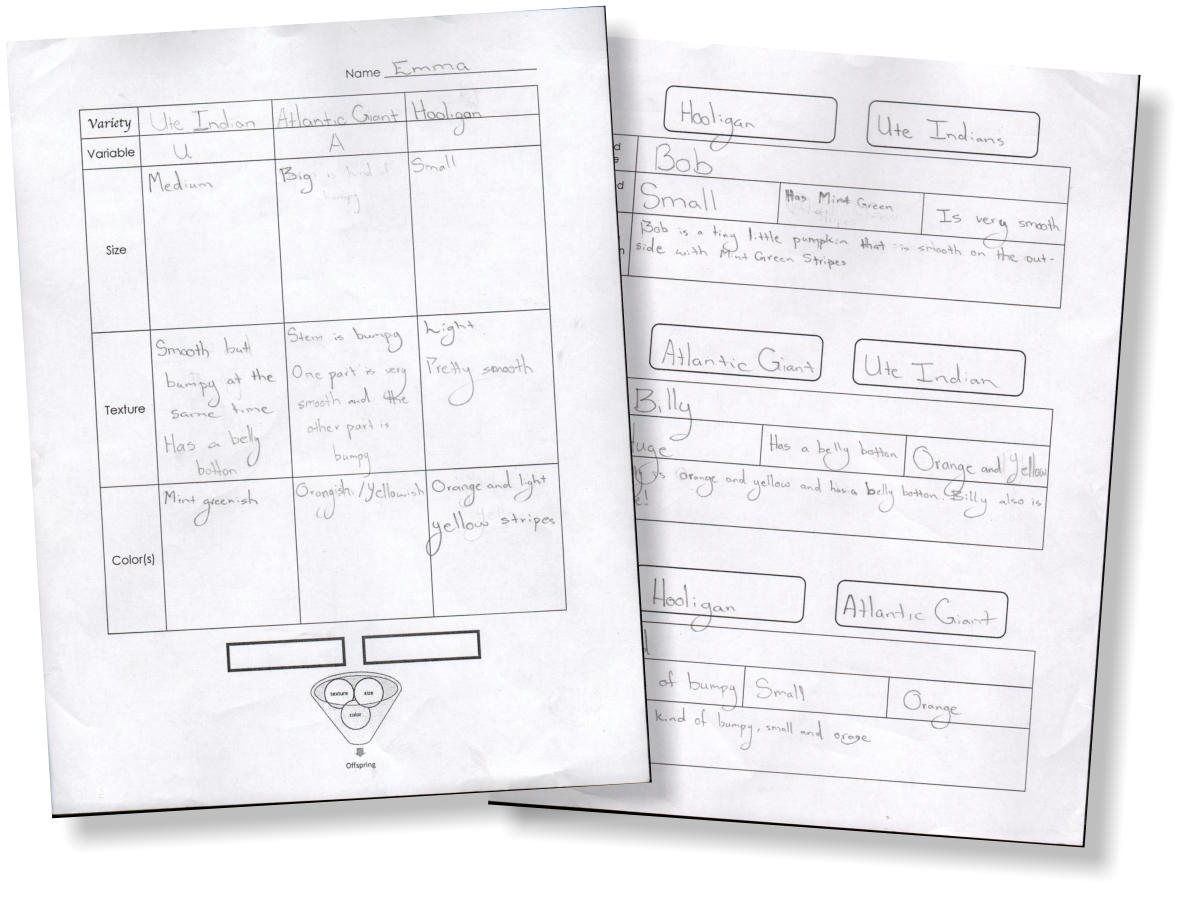 Name Emma
Variety Ute Indian Atlantic Giant Hooligan
Variable U A
Size Medium Big Small
Texture
Smooth but
bumpy at the
same time
Has a belly
botton
Stem is bumpy
One part is very
smooth and the
other part is
bumpy
Light
Pretty smooth
Color(s)
Mint greenish
Orangish/Yellowish
Orange and light
yellow stripes
texture size
color
Offspring
Hooligan Ute Indians
Bob
Small Has Mint Green Is very smooth
Bob is a tiny little pumpkin that is smooth on the out-
side with Mint Green Stripes
Atlantic Giant Ute Indian
Billy
Has a belly botton Orange and Yellow
is orange and yellow and has a belly botton. Billy also is
Hooligan Atlantic Giant
of bumpy Small Orange
kind of bumpy, small and orage